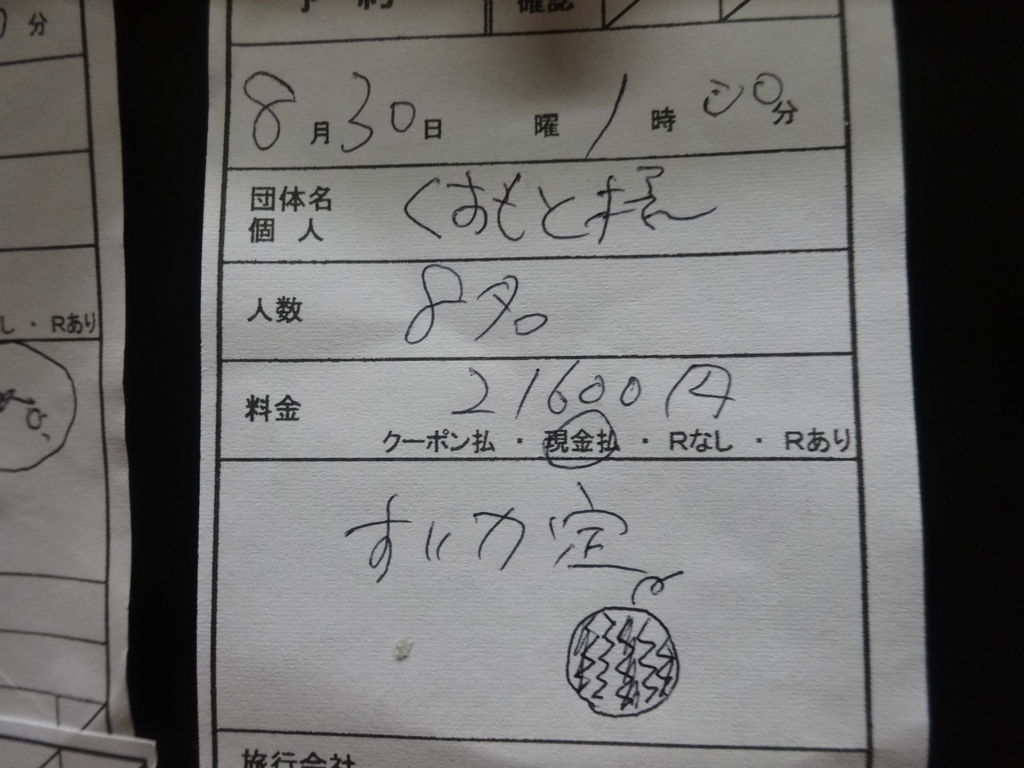 予約 確認
8月30日 曜 1時00分
団体名
個人
くすもと様
人数 8名
料金 21600円
クーポン払 ・ 現金払 ・ Rなし ・ Rあり
すいか定
旅行会社
分
し ・ Rあり